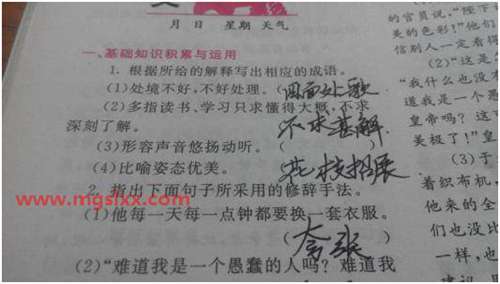 月 日 星期 天气
一、基础知识积累与运用
1. 根据所给的解释写出相应的成语。
(1)处境不好,不好处理。(
(2)多指读书、学习只求懂得大概,不求
深刻了解。
不求甚解
(3)形容声音悠扬动听。(
(4)比喻姿态优美。
花枝招展
2. 指出下面句子所采用的修辞手法。
(1)他每一天每一点钟都要换一套衣服。
(夸张
(2)“难道我是一个愚蠢的人吗?难道我
www.mgslxx.com
的官员说,“陛下
美的色彩!”他们
信别人一定看得
(2)“这是
“我什么也没
道我是一个愚
皇帝吗?这
美极了!”皇
(3)于
着织布机,
他来的全
们也没比
一样,也